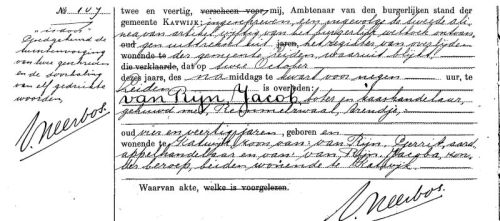 No 107
Goedgekeurd de
buitenvoeging
van twee geschreven
en de doorhaling
van elf gedrukte
woorden.
v. Neerbos.
twee en veertig, verscheen voor mij, Ambtenaar van den burgerlijken stand der
gemeente KATWIJK: ingeschreven, een ingevolge de tweede ali-
nea van artikel vijftig van het burgerlijk wetboek ontvan-
oud gen uittreksel uit jaren, het register van overlijden
wonende te der gemeente Leiden, waaruit blijkt,
die verklaarde, dat op twee October
dezes jaars, des na middags te kwart voor negen uur, te
Leiden is overleden:
van Rijn, Jacob, boter en kaashandelaar,
gehuwd met, Remmelzwaal, Arendje,
oud vier en veertig jaren, geboren en
wonende te Katwijk, zoon van: van Rijn, Gerrit, aard-
appelhandelaar en van: van Rijn, Jacoba, zon-
der beroep, beiden wonende te Katwijk.
Waarvan akte, welke is voorgelezen.
v. Neerbos.